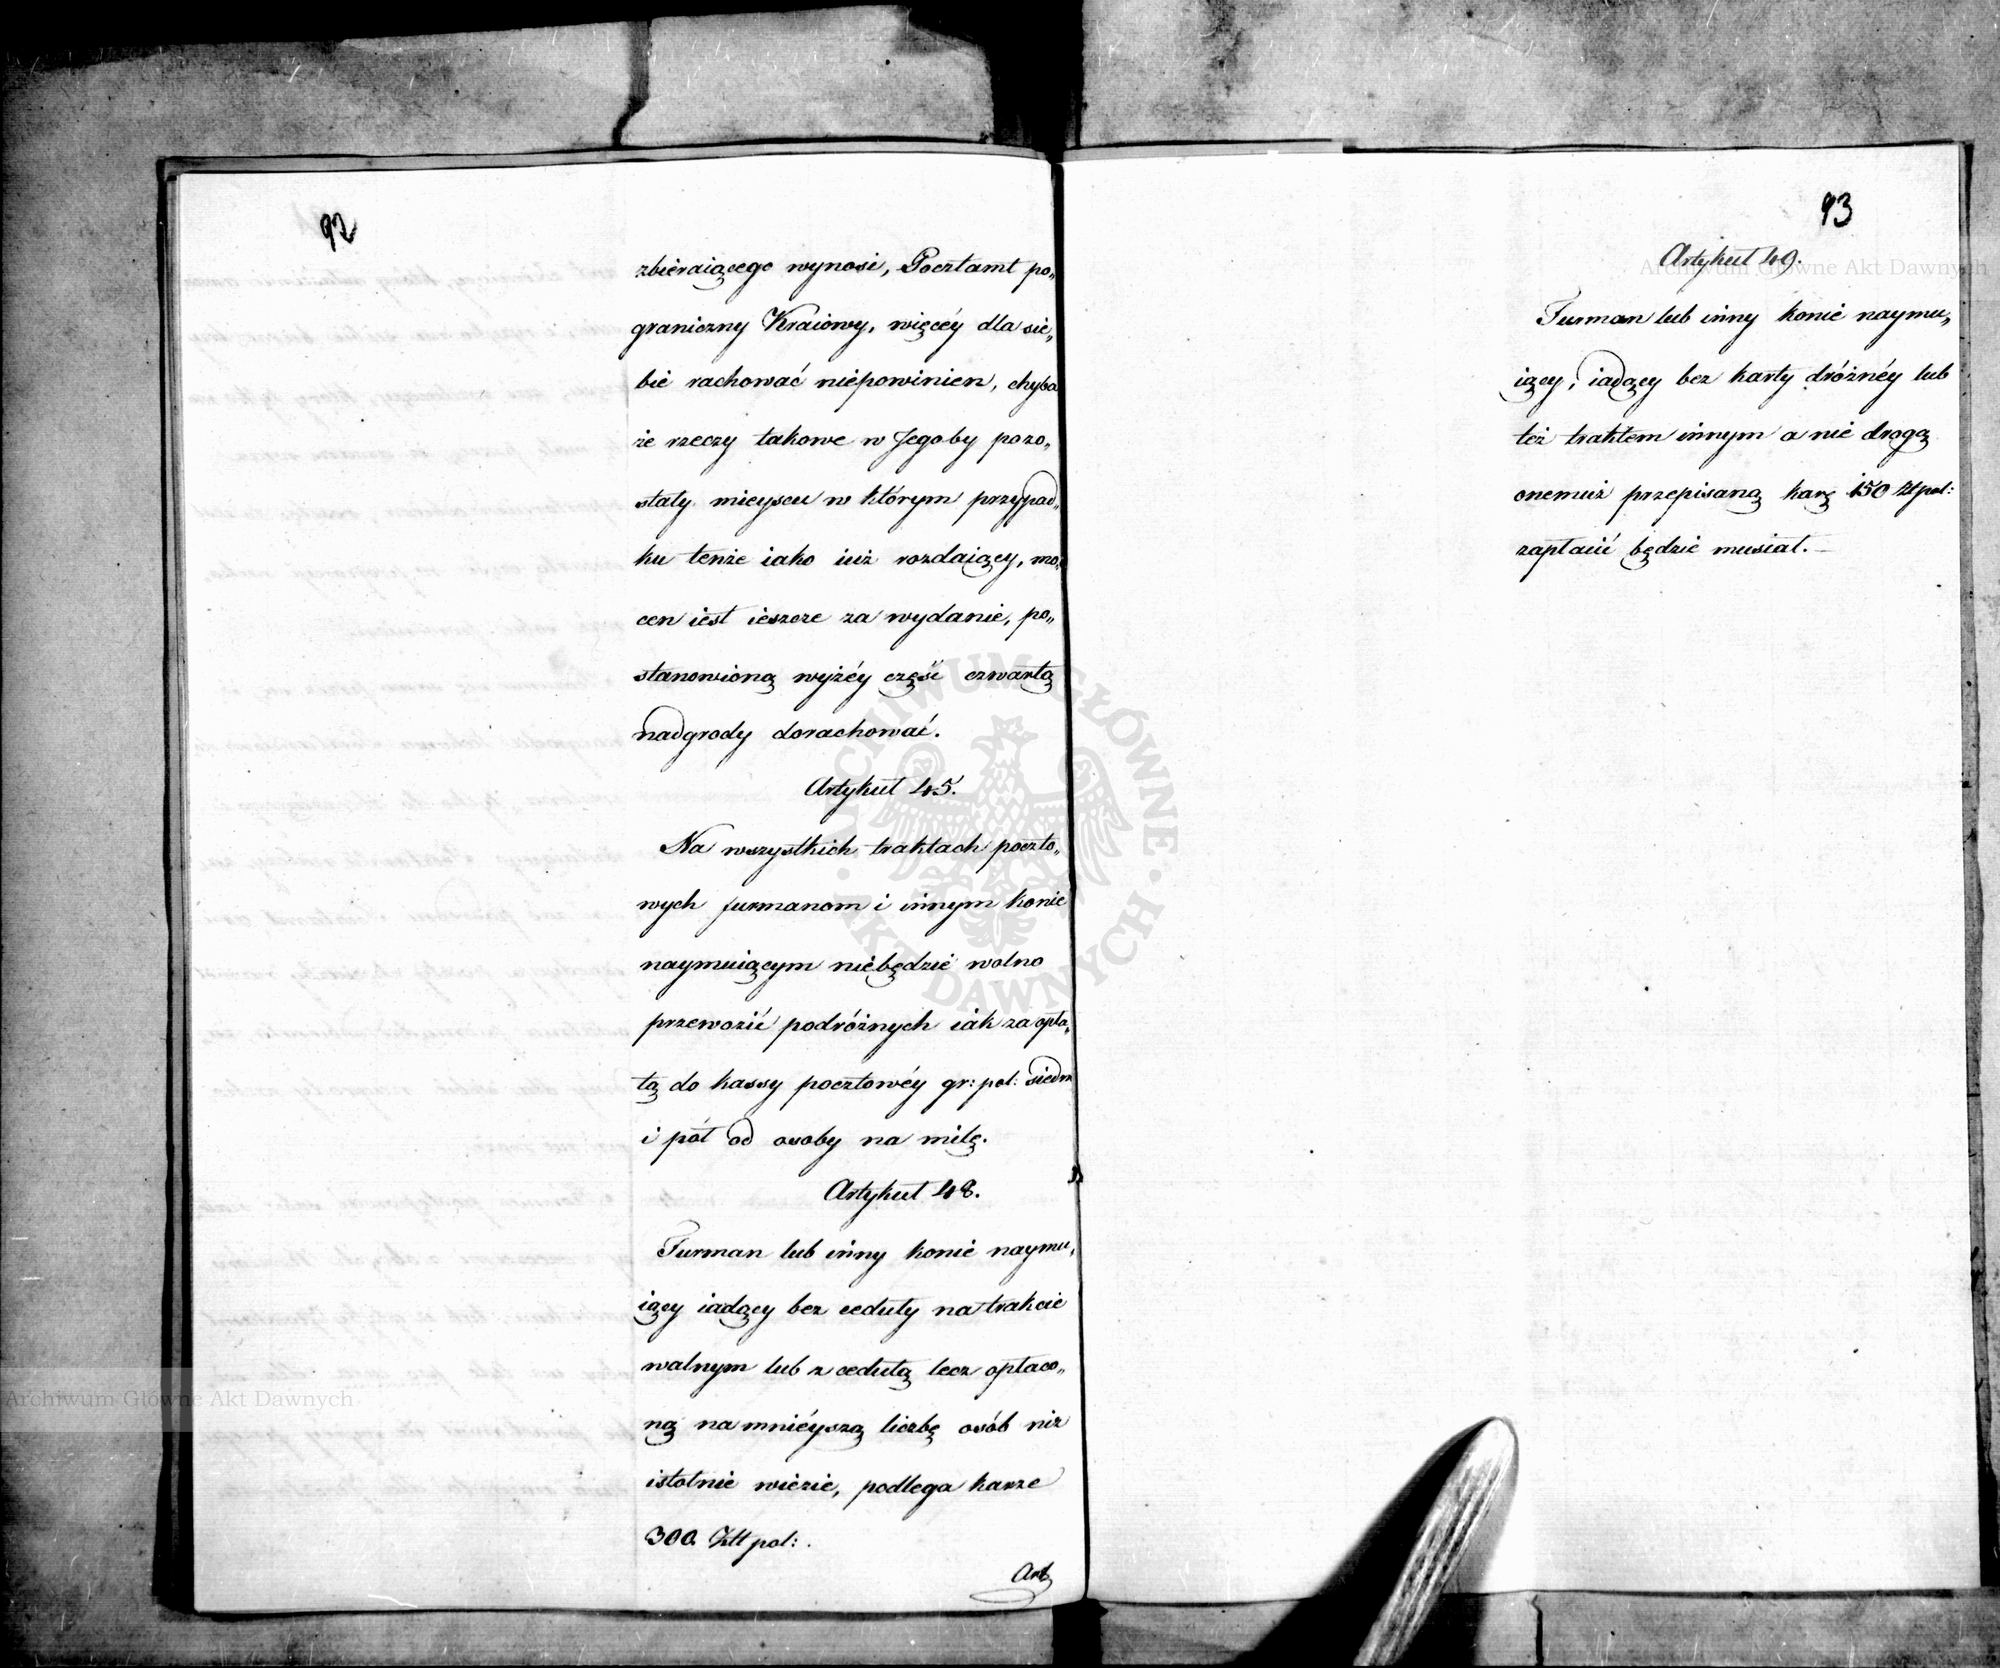 92
zbieraiącego wynosi, Pocztamt po„
graniczny Kraiowy, więcéy dla sie„
bie rachować niepowinien, chyba
że rzeczy takowe w Jegoby pozo„
stały mieyscu w którym przypad„
ku tenże iako iuż rozdaiący, mo„
cen iest ieszcze za wydanie, po„
stanowioną wyżéy część czwartą
nadgrody dorachować.
Artykuł 45.
Na wszystkich traktach poczto„
wych furmanom i innym konie
naymuiącym niebędzie wolno
przewozić podróżnych iak za opła„
tą do kassy pocztowéy gr: pol: siedm
i pół od osoby na milę.
Artykuł 48.
Furman lub inny konie naymu„
iący iadący bez ceduły na trakcie
walnym lub z cedułą lecz opłaco„
ną na mniéyszą liczbę osób niż
istotnie wiezie, podlega karze
300. Złł pol: .
Art
93
Artykuł 49.
Furman lub inny konie naymu„
iący, iadący bez karty dróżnéy lub
też traktem innym a nie drogą
onemuż przepisaną karę 150 Złpol:
zapłacić będzie musiał. —
Archiwum Główne Akt Dawnych
Archiwum Główne Akt Dawnych
ARCHIWUM GŁÓWNE · AKT DAWNYCH ·